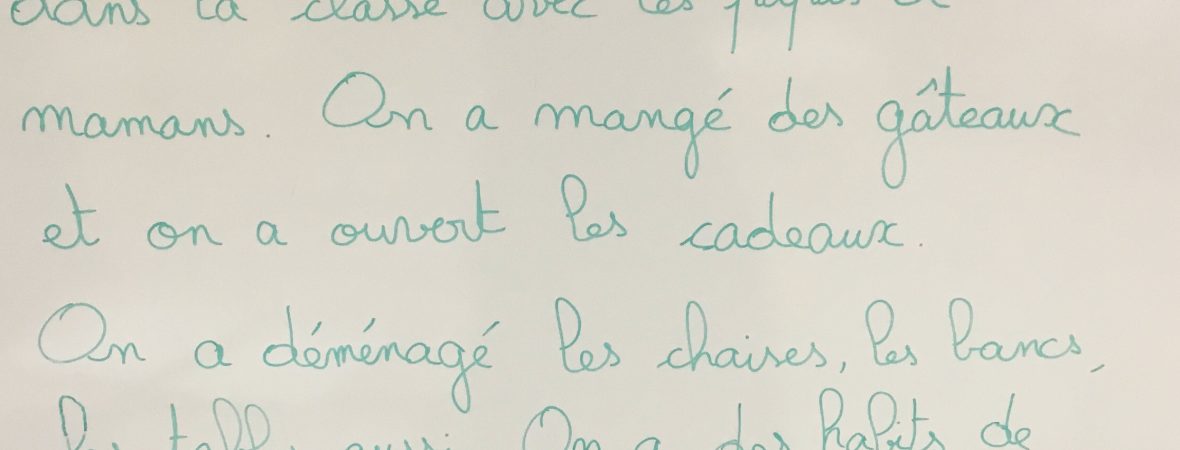 dans la classe avec les papas et
mamans. On a mangé des gâteaux
et on a ouvert les cadeaux.
On a déménagé les chaises, les bancs,
les tables aussi. On a des habits de